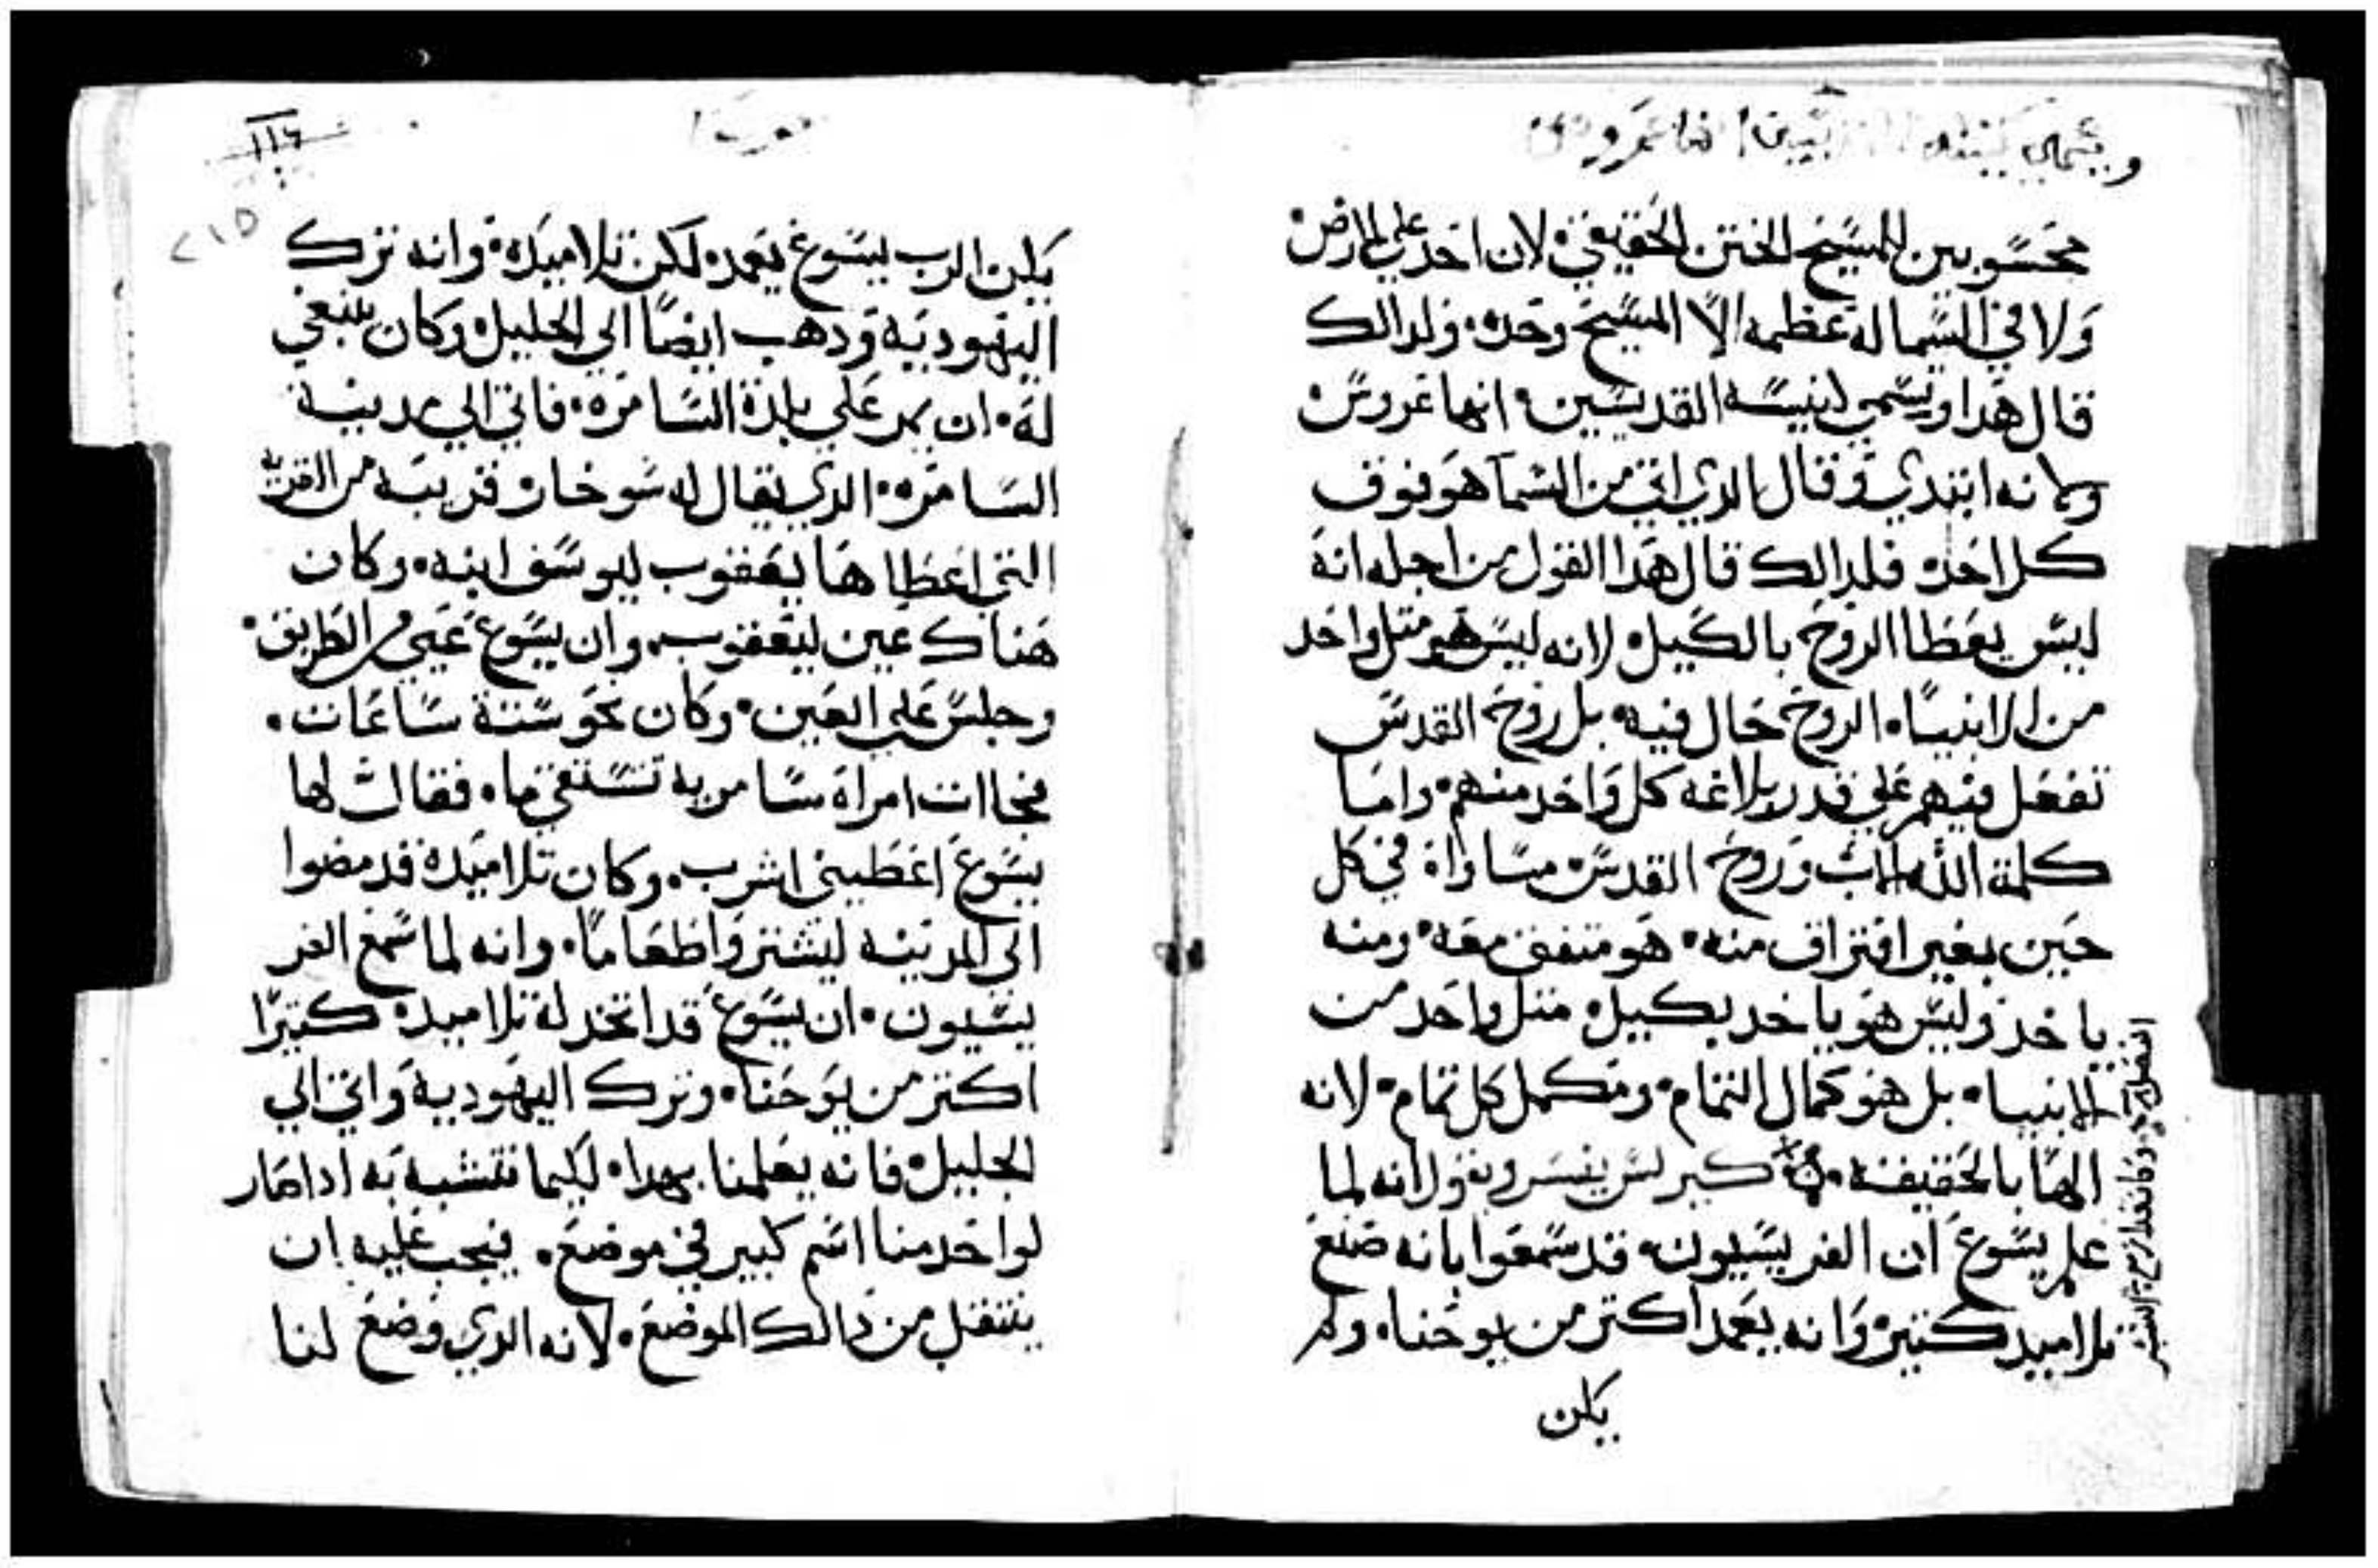 ويسمي انها عروس
محسوبين للمسيح الختن الحقيقي لان احد علي الارض
ولا في السما له عظمه الا المسيح وحده ولدالك
قال هدا ويسمي كنيسه القديسين انها عروس
ولانه ابتدي وقال الدي اتي من السما هو فوق
كل احد فلدالك قال هدا القول من اجله انه
ليس يعطا الروح بالكيل لانه ليس هو متل واحد
من الانبيا الروح حال فيه بل روح القدس
تفعل فيهم علي قدر بلاغه كل واحد منهم واما
كلمة الله الاب وروح القدس مساواة في كل
حين بغير افتراق منه هو متفق معه ومنه
ياخد وليس هو ياخد بكيل متل واحد من
الانبيا بل هو كمال التمام ومكمل كل تمام لانه
الها بالحقيقه كيرلس يفسر ويقول انه لما
علم يسوع ان الفريسيون قد سمعوا بانه صنع
تلاميد كتيره وانه يعمد اكتر من يوحنا ولم
يكن
٢١٥
يكن الرب يسوع يعمد لكن تلاميده وانه ترك
اليهوديه ودهب ايضا الي الجليل وكان ينبغي
له ان يمر علي بلدة السامره فاتي الي مدينة
السامره الدي يقال له سوخار قريبه من القريه
التي اعطاها يعقوب ليوسف ابنه وكان
هناك عين ليعقوب وان يسوع عيي من الطريق
وجلس علي العين وكان نحو ستة ساعات
فجاات امراه سامريه تستقي ما فقال لها
يسوع اعطيني اشرب وكان تلاميده قد مضوا
الي المدينه ليشتروا طعاما وانه لما سمع الفر
يسيون ان يسوع قد اتخد له تلاميد كتيرا
اكتر من يوحنا وترك اليهودية واتي الي
الجليل فانه يعلمنا بهدا لكيما نتشبه به ادا صار
لواحد منا اسم كبير في موضع فيجب عليه ان
ينتقل من دالك الموضع لانه الدي وضع لنا